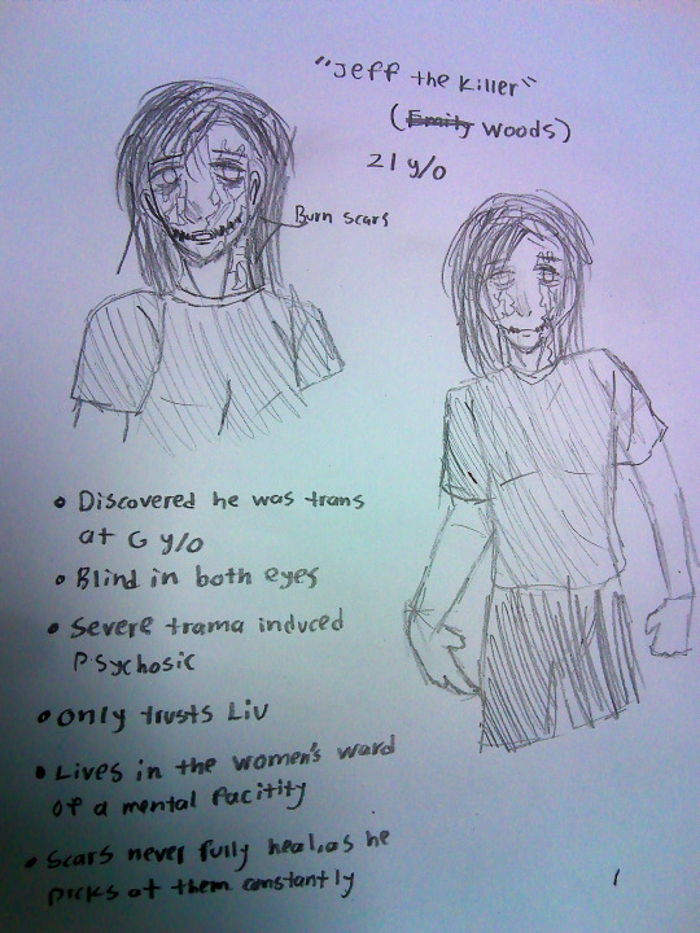 "Jeff the Killer"
(Emily Woods)
21 y/o
Burn scars
• Discovered he was trans
at 6 y/o
• Blind in both eyes
• Severe trama induced
Psychosic
• Only trusts Liv
• Lives in the women's ward
of a mental facitity
• Scars never fully heal, as he
picks at them constantly